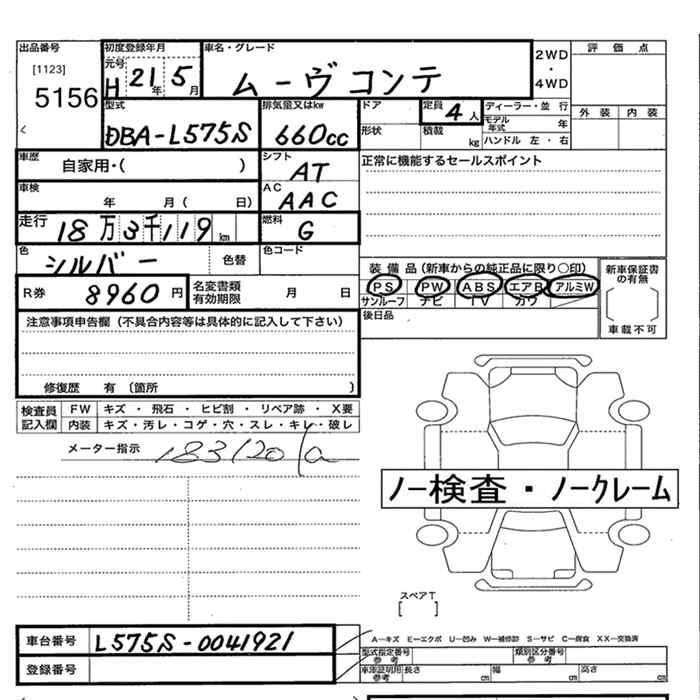 出品番号
[1123]
5156
初度登録年月
元号
H 21年 5月
車名・グレード
ムーヴコンテ
2WD
・
4WD
評価点
外装 内装
型式
DBA-L575S
排気量又はkw
660cc
ドア
定員
4人
形状
積載
kg
ディーラー・並行
モデル年式 年
ハンドル 左・右
車歴
自家用・( )
シフト
AT
正常に機能するセールスポイント
車検
年 月( 日)
AC
AAC
走行
18万3千119km
燃料
G
色
シルバー
色替
色コード
R券
8960円
名変書類有効期限 月 日
装備品(新車からの純正品に限り○印)
PS PW ABS エアB アルミW
サンルーフ ナビ TV カワ
後日品
新車保証書の有無
車載不可
注意事項申告欄(不具合内容等は具体的に記入して下さい)
修復歴 有 (箇所 )
検査員記入欄
FW キズ・飛石・ヒビ割・リペア跡・X要
内装 キズ・汚レ・コゲ・穴・スレ・キレ・破レ
メーター指示
183120
ノー検査・ノークレーム
スペアT
[ ]
車台番号
L575S-0041921
登録番号
A-キズ E-エクボ U-凹み W-補修跡 S-サビ C-腐食 XX-交換済
型式指定番号 参考
類別区分番号 参考
車庫証明用 参考
長さ cm
幅 cm
高さ cm